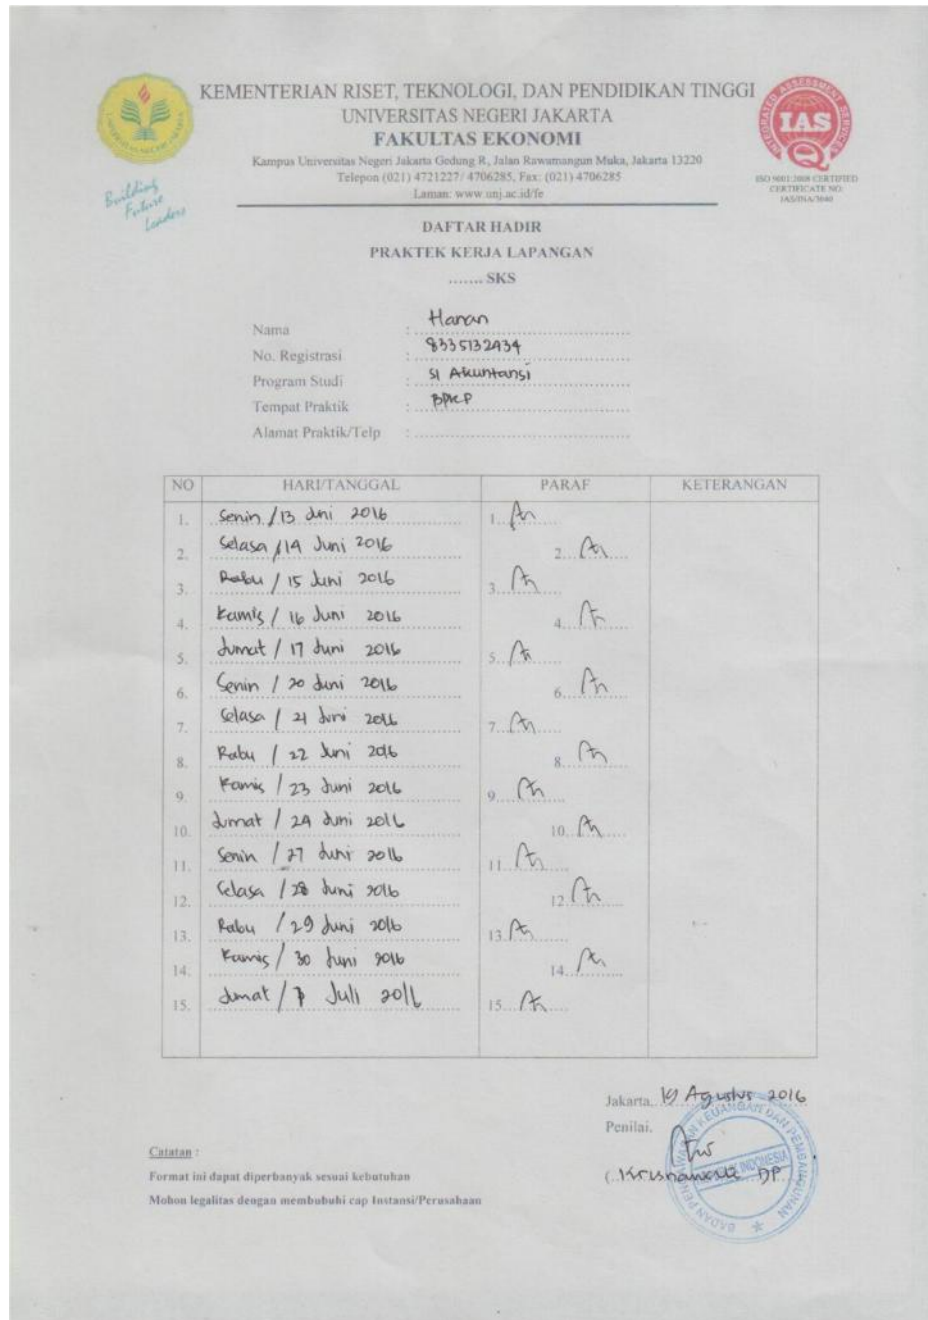 KEMENTERIAN RISET, TEKNOLOGI, DAN PENDIDIKAN TINGGI
UNIVERSITAS NEGERI JAKARTA
FAKULTAS EKONOMI
Kampus Universitas Negeri Jakarta Gedung R, Jalan Rawamangun Muka, Jakarta 13220
Telepon (021) 4721227/ 4706285, Fax: (021) 4706285
Laman: www.unj.ac.id/fe
Building
Future
Leaders
INTEGRATED ASSESSMENT SERVICES
IAS
ISO 9001:2008 CERTIFIED
CERTIFICATE NO:
DAFTAR HADIR
PRAKTEK KERJA LAPANGAN
....... SKS
Nama : Hanan
No. Registrasi : 8335132434
Program Studi : S1 Akuntansi
Tempat Praktik : BPKP
Alamat Praktik/Telp :
NO HARI/TANGGAL PARAF KETERANGAN
1. Senin / 13 Juni 2016 1.
2. Selasa / 14 Juni 2016 2.
3. Rabu / 15 Juni 2016 3.
4. Kamis / 16 Juni 2016 4.
5. Jumat / 17 Juni 2016 5.
6. Senin / 20 Juni 2016 6.
7. Selasa / 21 Juni 2016 7.
8. Rabu / 22 Juni 2016 8.
9. Kamis / 23 Juni 2016 9.
10. Jumat / 24 Juni 2016 10.
11. Senin / 27 Juni 2016 11.
12. Selasa / 28 Juni 2016 12.
13. Rabu / 29 Juni 2016 13.
14. Kamis / 30 Juni 2016 14.
15. Jumat / 1 Juli 2016 15.
Jakarta, 19 Agustus 2016
Penilai,
DP
BADAN PENGAWASAN KEUANGAN DAN PEMBANGUNAN
INDONESIA
Catatan :
Format ini dapat diperbanyak sesuai kebutuhan
Mohon legalitas dengan membubuhi cap Instansi/Perusahaan